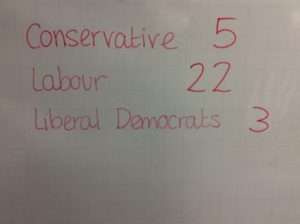 Conservative 5
Labour 22
Liberal Democrats 3